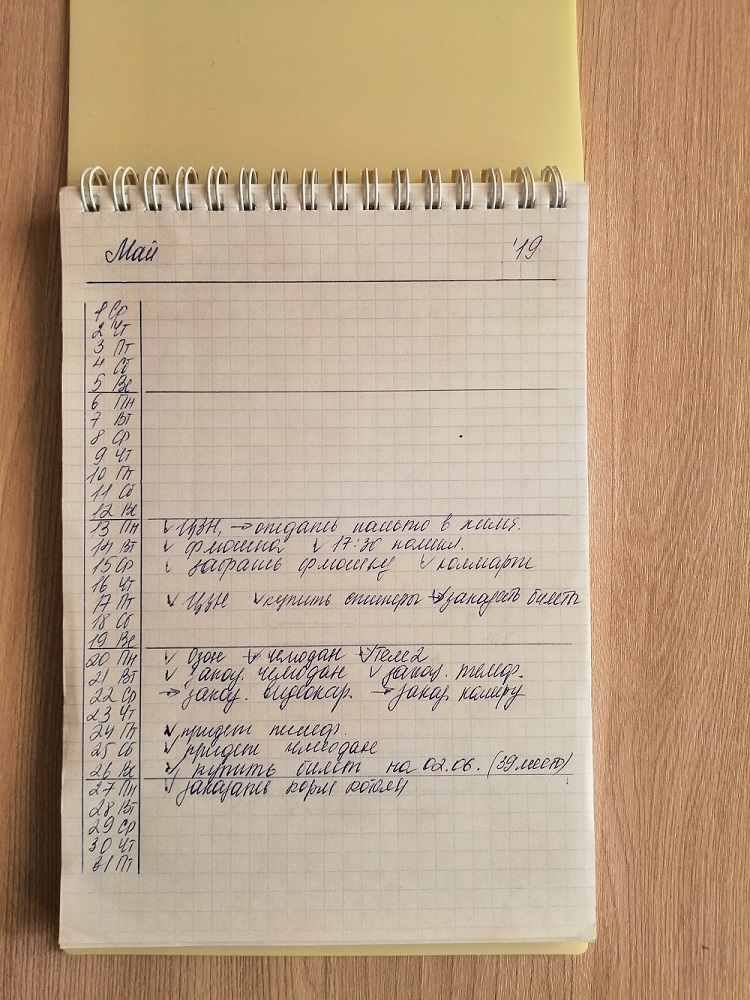 Май '19
1 Ср
2 Чт
3 Пт
4 Сб
5 Вс
6 Пн
7 Вт
8 Ср
9 Чт
10 Пт
11 Сб
12 Вс
13 Пн ✓ ЦЗН, → отдать пальто в химч.
14 Вт ✓ флюшка ✓ 17:30
15 Ср ✓ забрать флюшку ✓
16 Чт
17 Пт ✓ ЦЗН ✓ купить → заказать билеты
18 Сб
19 Вс
20 Пн ✓ Озон ✓ чемодан ✓ Теле2
21 Вт ✓ заказ. чемодан ✓ заказ. телеф.
22 Ср → заказ. видеокар. → заказ. камеру
23 Чт
24 Пт ✓ придет телеф.
25 Сб ✓ придет чемодан
26 Вс ✓ купить билет на 02.06. (39 место)
27 Пн ✓ заказать корм
28 Вт
29 Ср
30 Чт
31 Пт